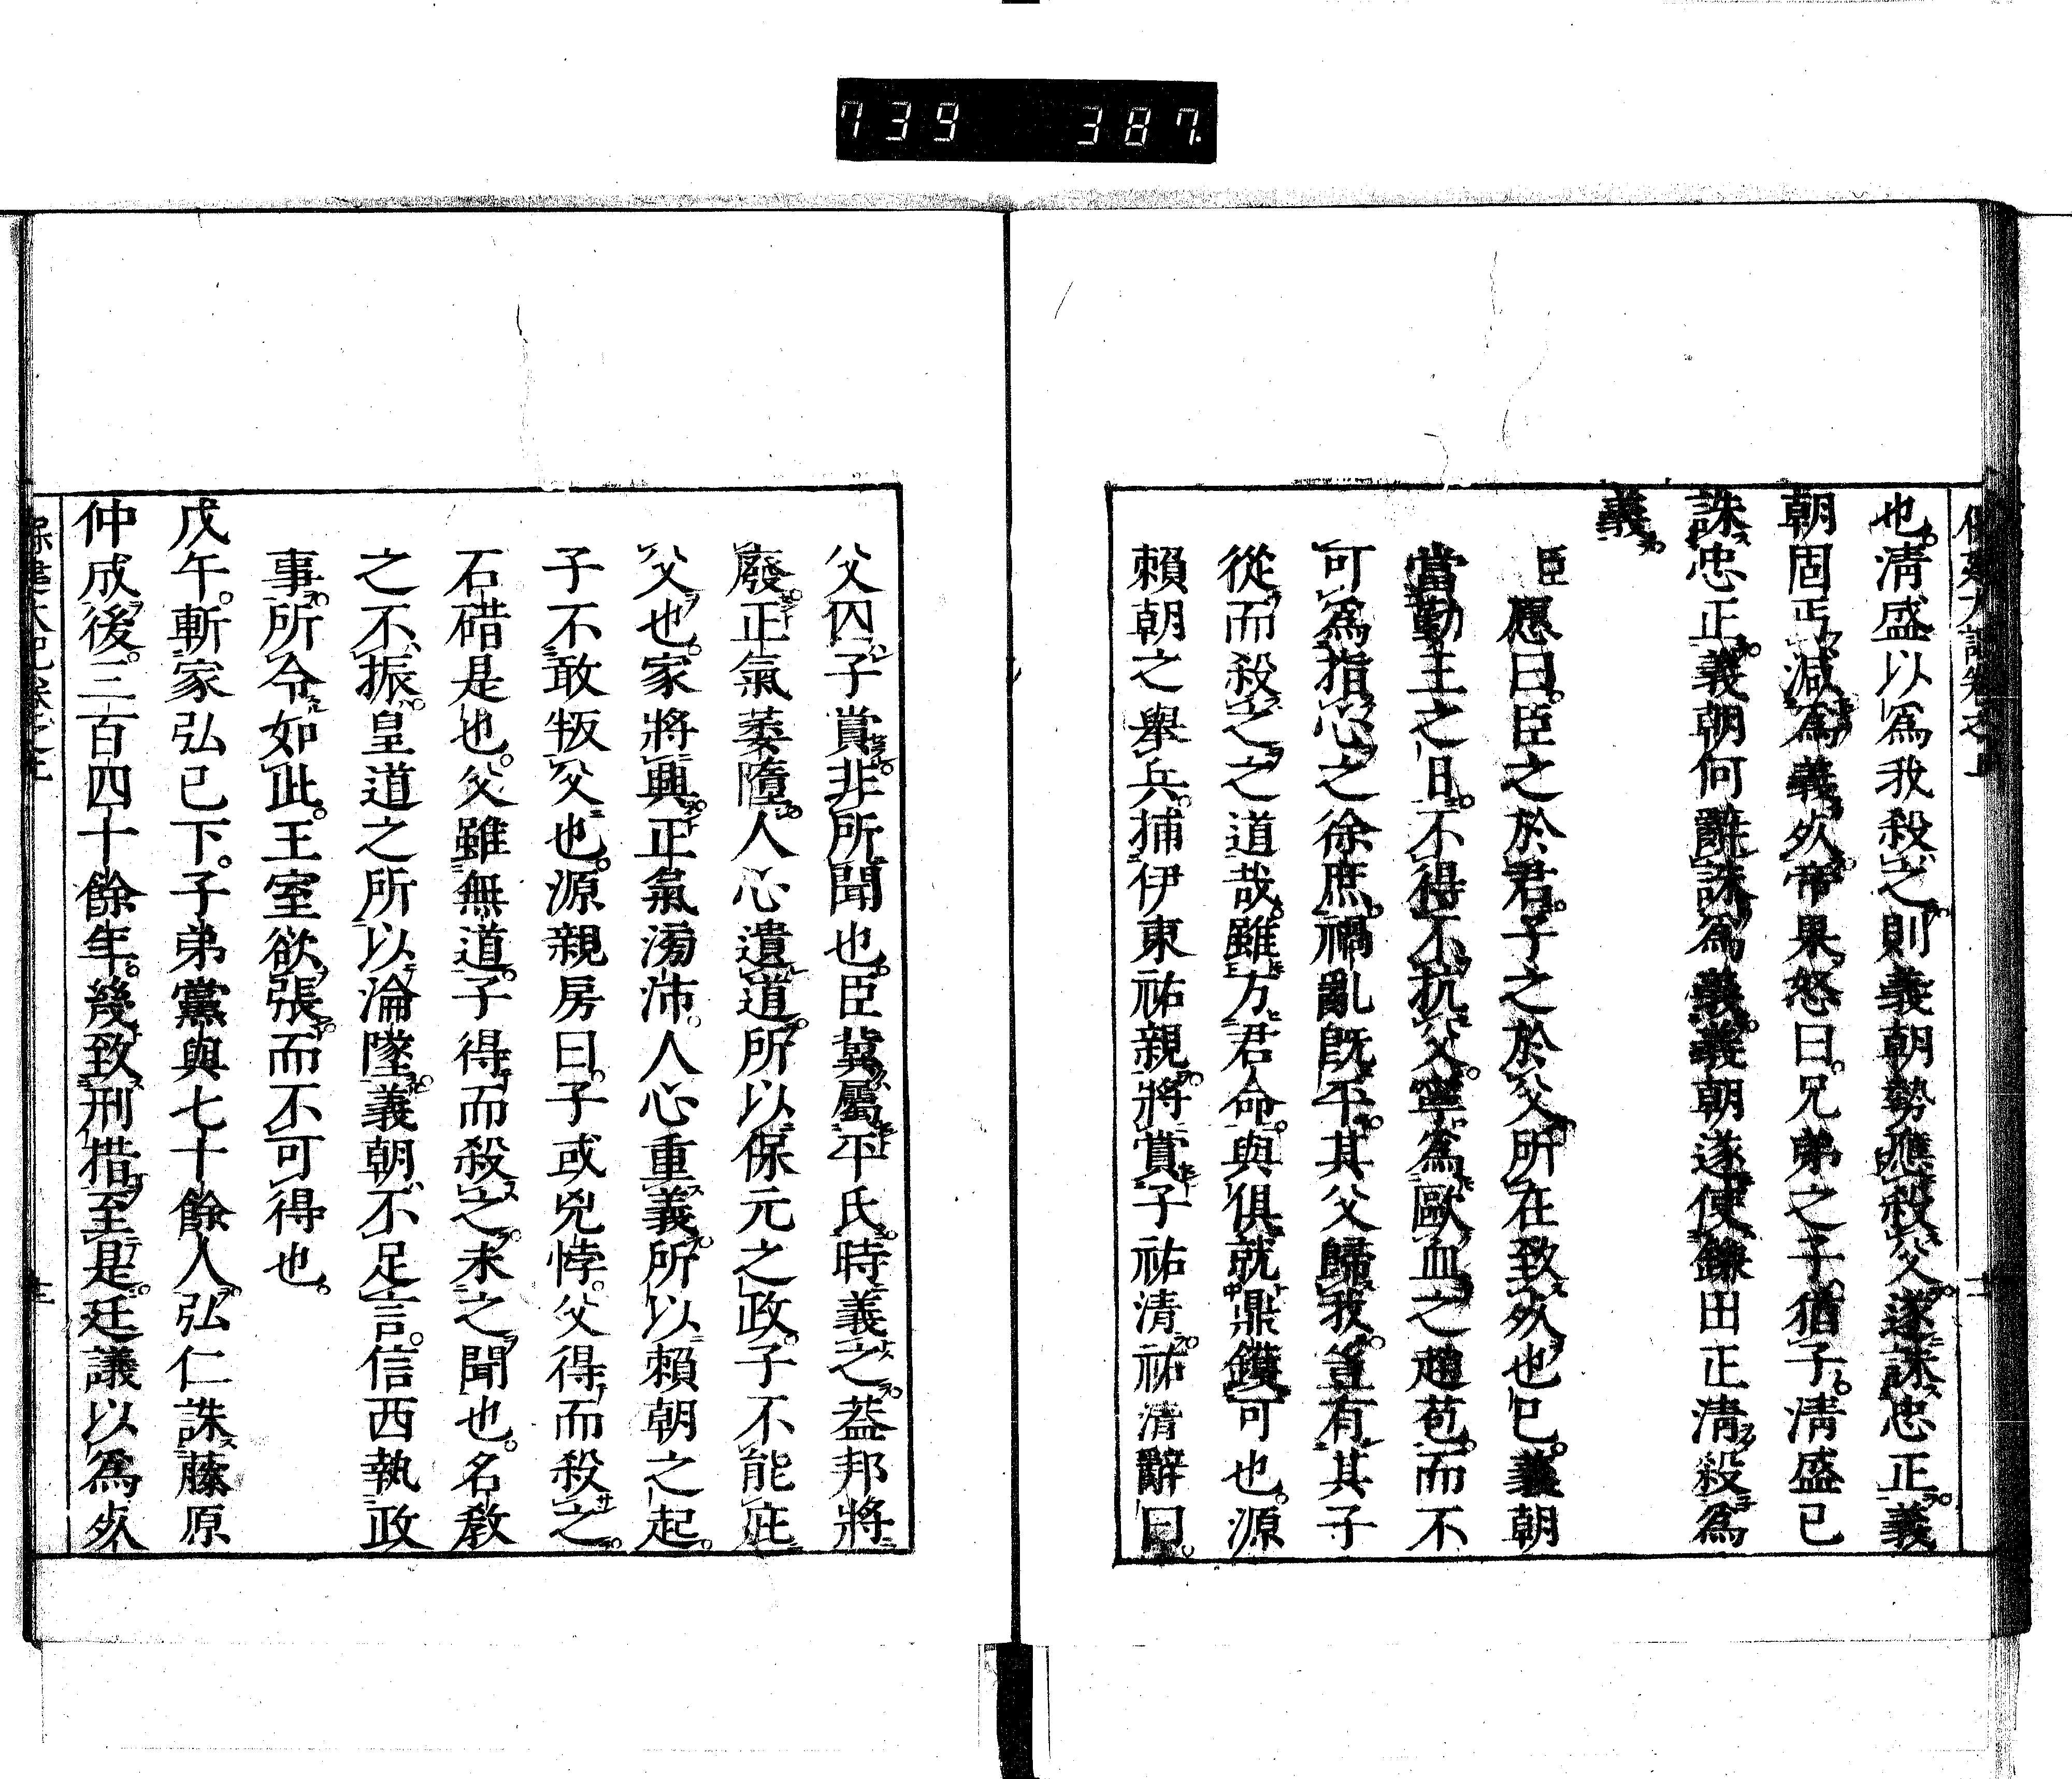 739 387.
也。淸盛以爲我殺之則義朝勢應殺父。遂誅忠正。義
朝固丐減爲義死。帝果怒曰。兄弟之子。猶子。淸盛已
誅忠正。義朝何辭誅爲義。義朝遂使鎌田正淸殺爲
義。
臣愿曰。臣之於君。子之於父。所在致死也已。義朝
當勤王之日。不得不抗父。寧爲歐血之趙苞。而不
可爲指心之徐庶。禍亂旣平。其父歸我。豈有其子
從而殺之之道哉。雖方君命。與俱就鼎鑊可也。源
賴朝之擧兵。捕伊東祐親。將賞子祐清。祐清辭曰。
父囚。子賞。非所聞也。臣冀屬平氏。時義之。蓋邦將
廢。正氣萎隳。人心遺道。所以保元之政。子不能庇
父也。家將興。正氣湧沛。人心重義。所以賴朝之起。
子不敢叛父也。源親房曰。子或兇悖。父得而殺之。
石碏是也。父雖無道。子得而殺之。未之聞也。名敎
之不振。皇道之所以淪墜。義朝不足言。信西執政
事。所令如此。王室欲張。而不可得也。
戊午。斬家弘已下。子弟黨與七十餘人。弘仁誅藤原
仲成後。三百四十餘年。幾致刑措。至是。廷議以爲死